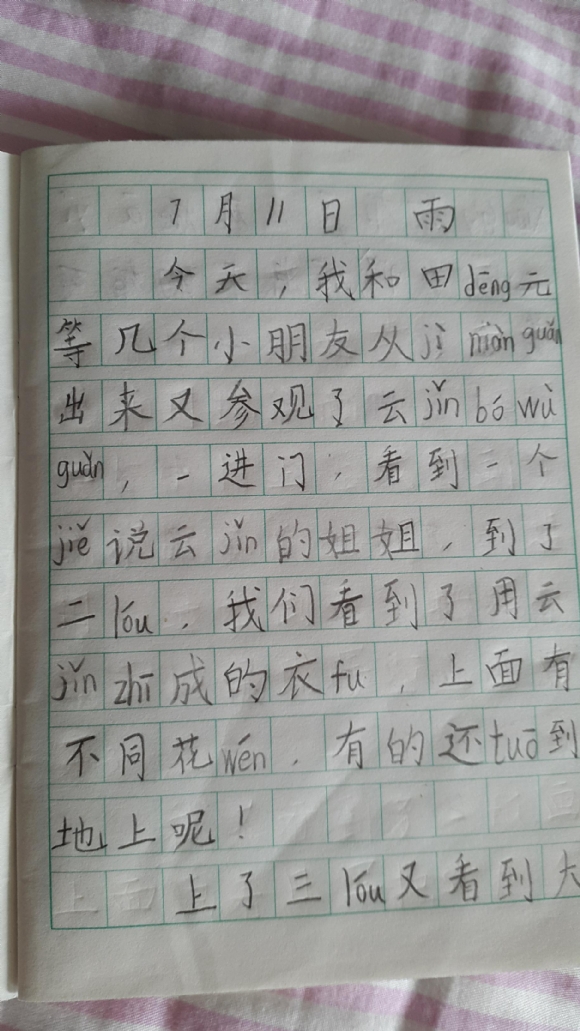 7月11日 雨
今天,我和田dēng元
等几个小朋友从jì niàn guǎn
出来又参观了云jǐn bó wù
guǎn,一进门,看到一个
jiě说云jǐn的姐姐,到了
二lóu,我们看到了用云
jǐn zhī成的衣fu,上面有
不同花wén,有的还tuō到
地上呢!
上了三lóu又看到大